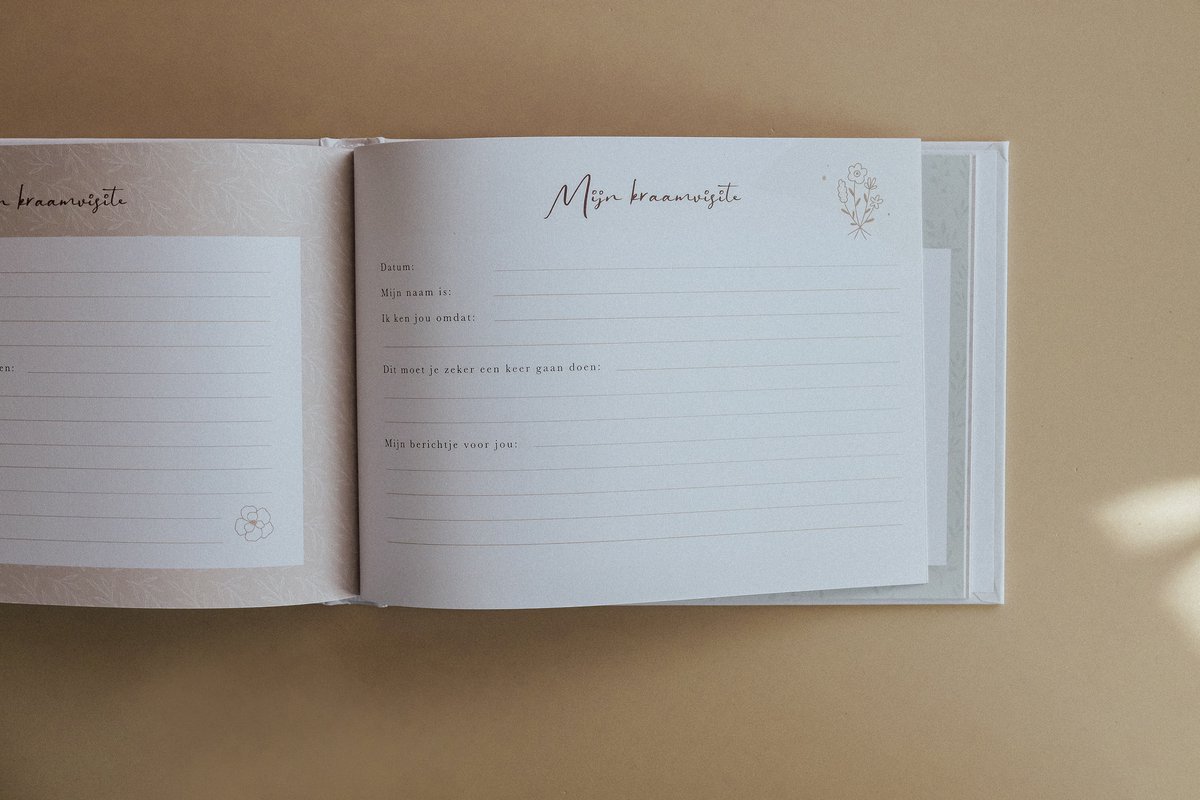 kraamvisite
en:
Mijn kraamvisite
Datum:
Mijn naam is:
Ik ken jou omdat:
Dit moet je zeker een keer gaan doen:
Mijn berichtje voor jou: